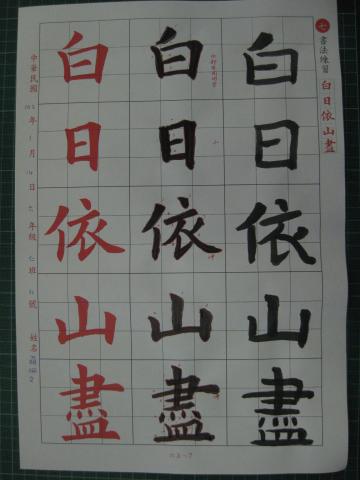 七 書法練習 白日依山盡
白日依山盡
白日依山盡
白日依山盡
中華民國 102 年 1 月 14 日 年級 班 號 姓名